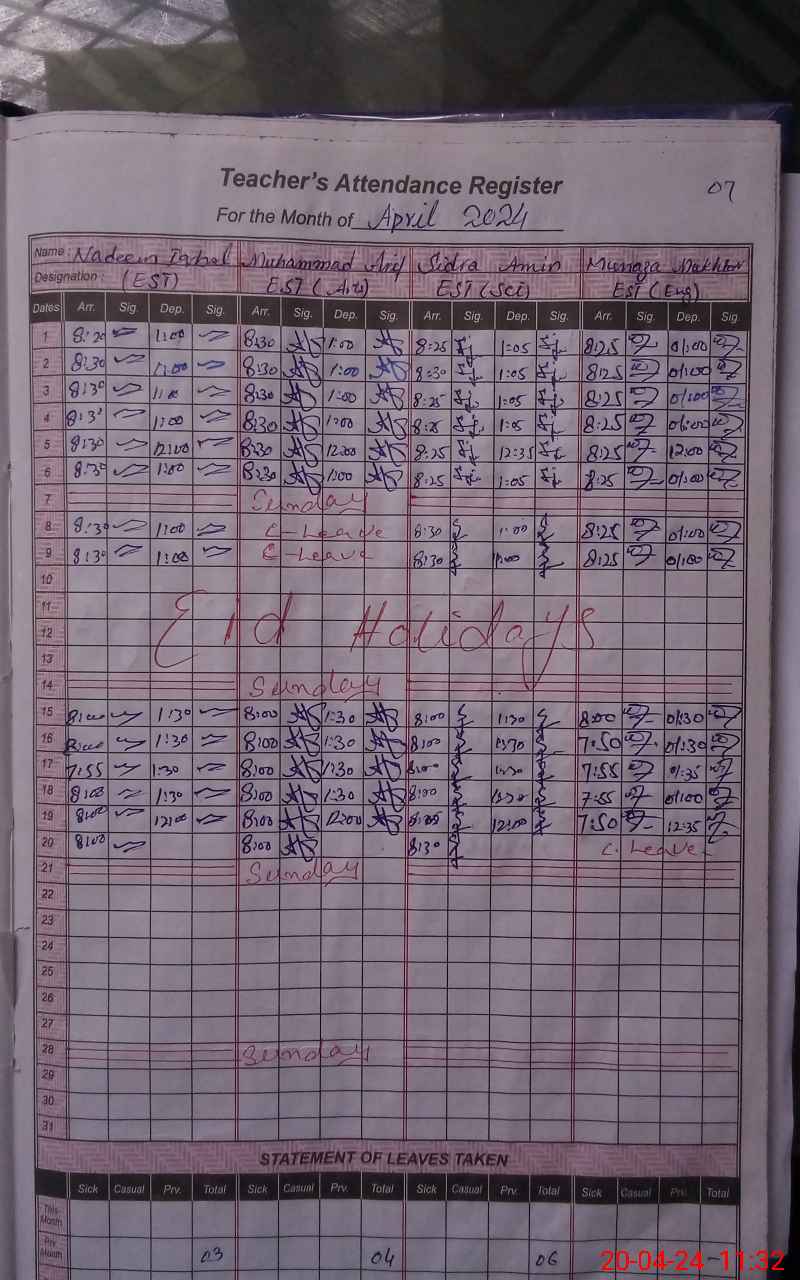 Teacher's Attendance Register
07
For the Month of April 2024
Name: Nadeem Iqbal Muhammad Arif Sidra Amin Mumaza Mukhtar
Designation: (EST) EST (Arts) EST (Sci) EST (Eng)
Dates Arr. Sig. Dep. Sig. Arr. Sig. Dep. Sig. Arr. Sig. Dep. Sig. Arr. Sig. Dep. Sig.
1 8:20 1:00 8:30 1:00 8:25 1:05 8:25 01:00
2 8:30 1:00 8:30 1:00 8:30 1:05 8:25 01:00
3 8:30 1:00 8:30 1:00 8:25 1:05 8:25 01:00
4 8:30 1:00 8:30 1:00 8:25 1:05 8:25 01:00
5 8:30 12:00 8:30 12:00 8:25 12:35 8:25 12:00
6 8:30 1:00 8:30 1:00 8:25 1:05 8:25 01:00
7 Sunday
8 8:30 1:00 C-Leave 8:30 1:00 8:25 01:00
9 8:30 1:00 C-Leave 8:30 1:00 8:25 01:00
10
11
12 Eid Holidays
13
14 Sunday
15 8:00 1:30 8:00 1:30 8:00 1:30 8:00 01:30
16 8:00 1:30 8:00 1:30 8:00 1:30 7:50 01:30
17 7:55 1:30 8:00 1:30 8:00 1:30 7:55 01:35
18 8:00 1:30 8:00 1:30 8:00 1:30 7:55 01:00
19 8:00 12:00 8:00 12:00 8:00 12:00 7:50 12:35
20 8:00 8:00 8:30 C. Leave
21 Sunday
22
23
24
25
26
27
28 Sunday
29
30
31
STATEMENT OF LEAVES TAKEN
Sick Casual Prv. Total Sick Casual Prv. Total Sick Casual Prv. Total Sick Casual Prv. Total
This Month
Prv. Month 03 04 06
20-04-24 11:32